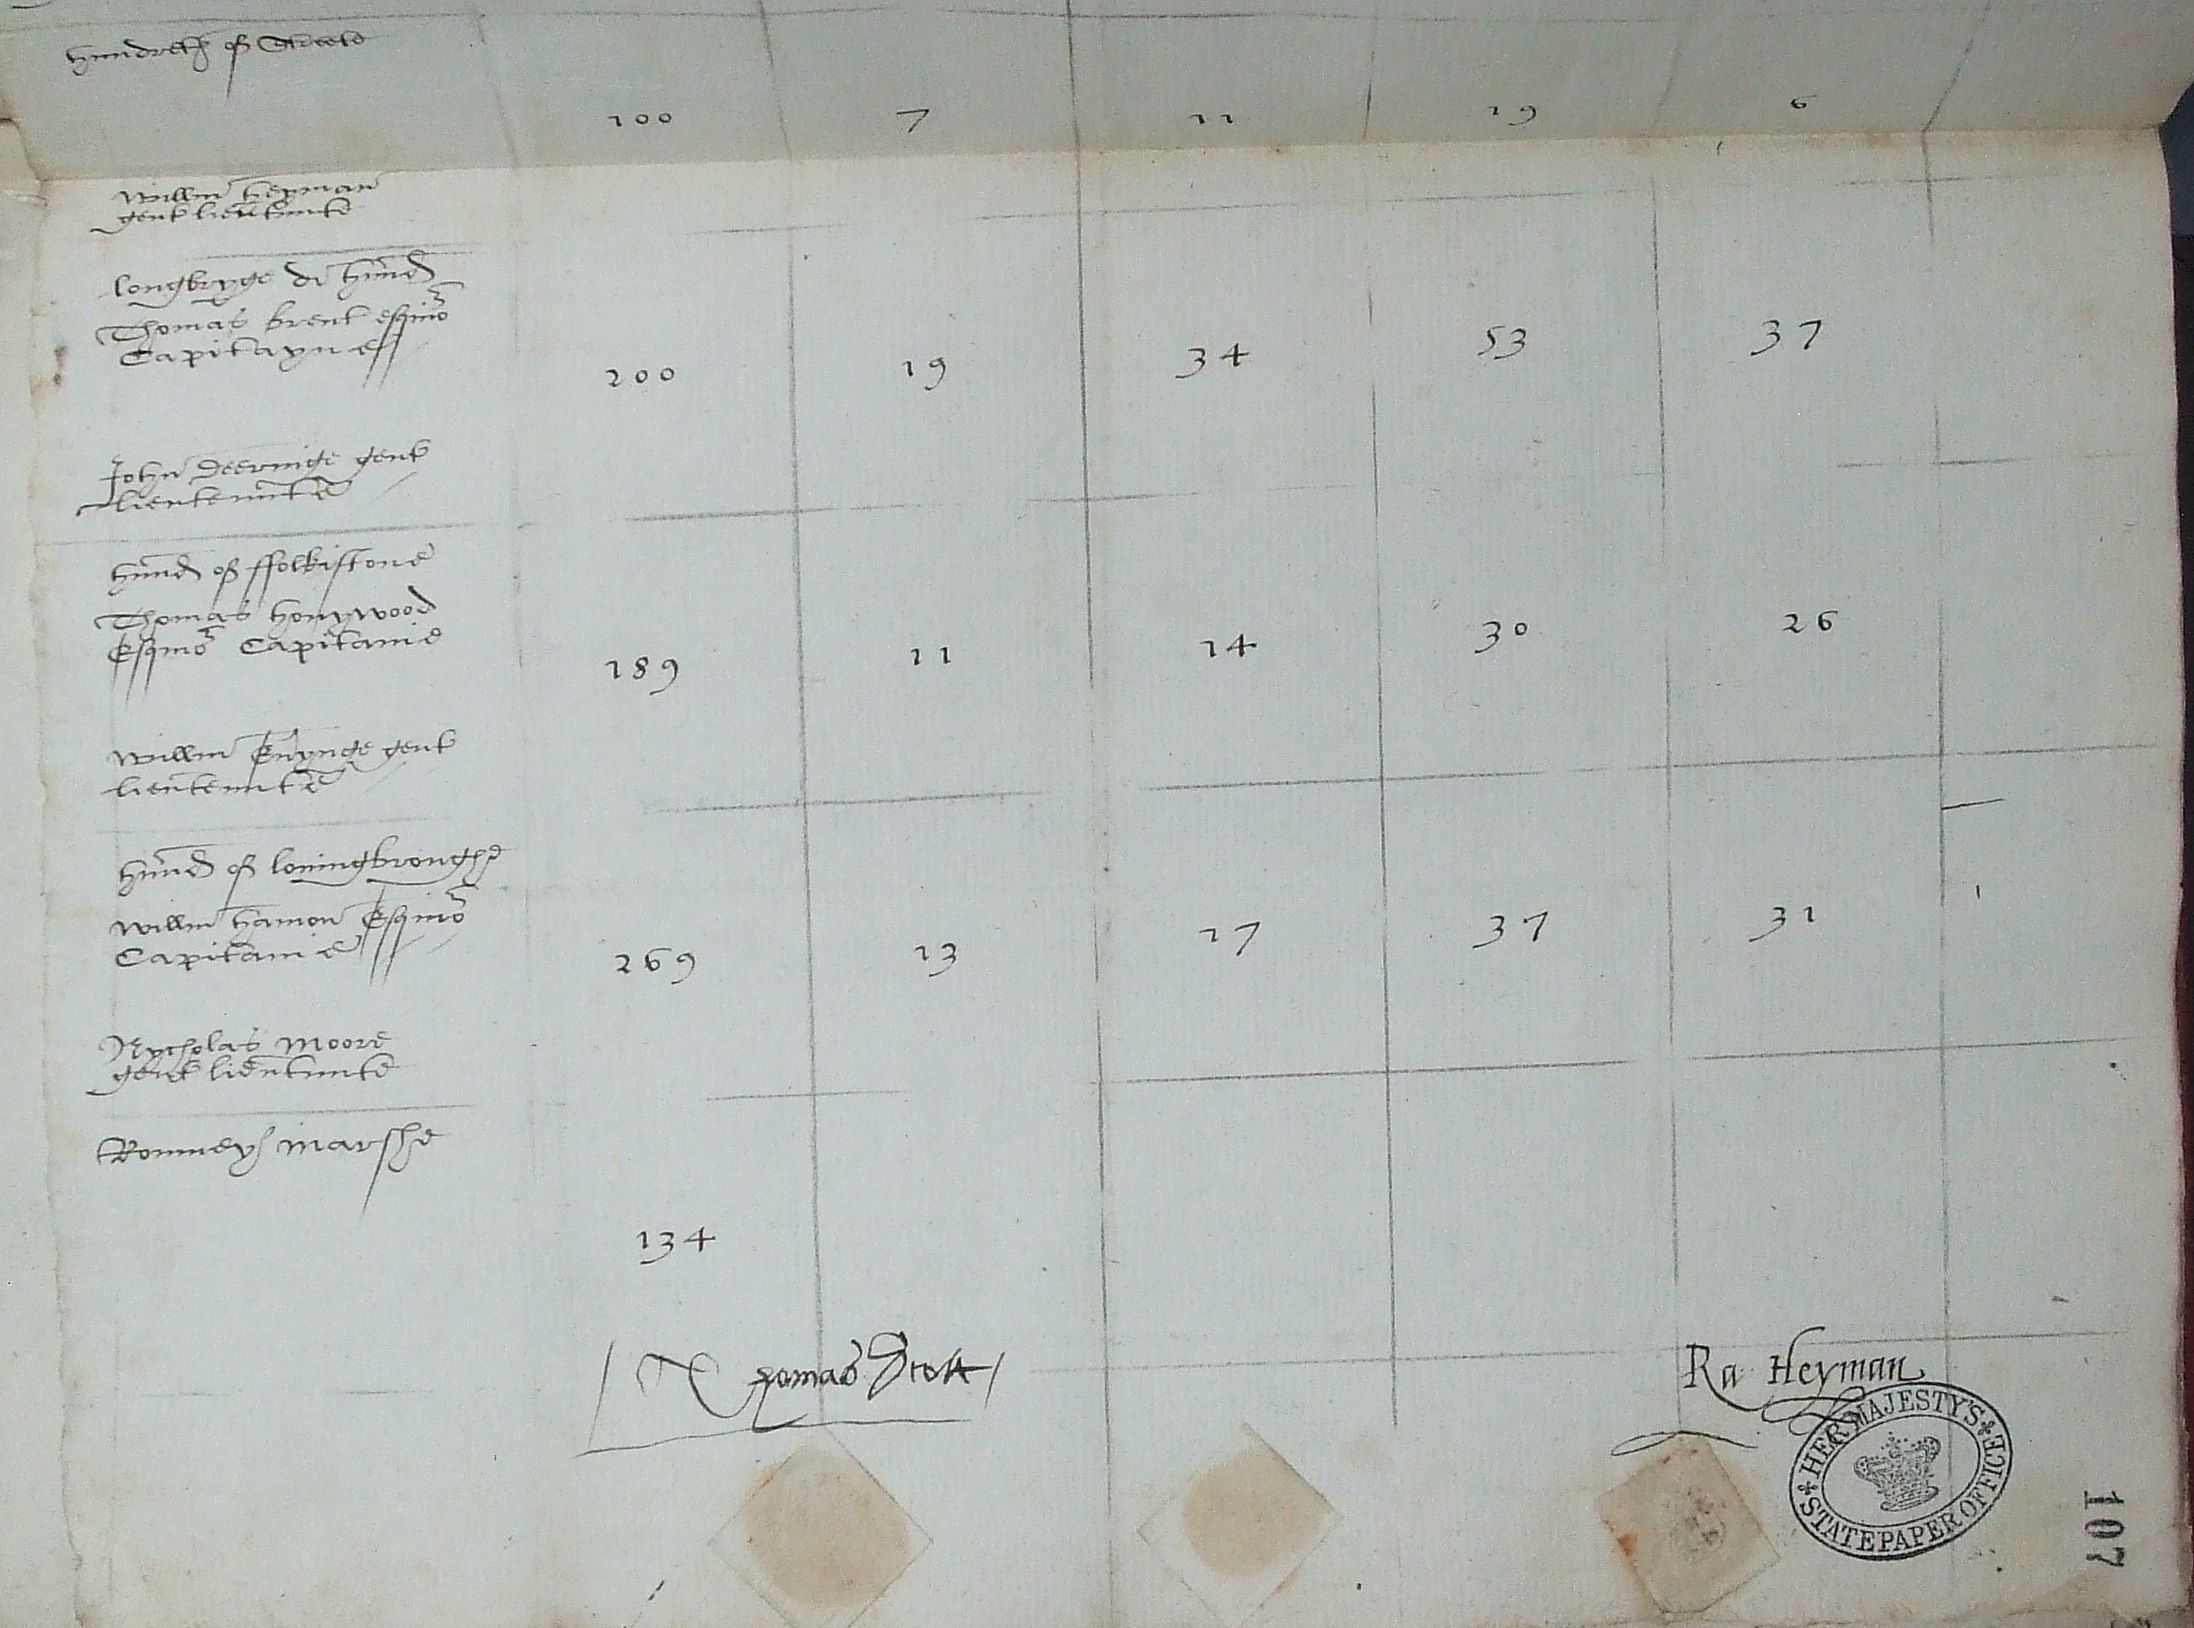 Hundreth of Streete
100 7 11 19 6
Willm Heyman
gent lieutennte
Longbryge di Hund
Thomas Brent esquior
Capitayne
200 19 34 53 37
John Deeringe gent
lieutennte
Hund of ffolkistone
Thomas Honywood
Esquior Capitaine
189 11 14 30 26
Willm gent
lieutennte
Hund of Loningbroughe
Willm Hamon Esquior
Capitaine
269 13 17 37 31
Nycholas Moore
gent lieutennte
Romney Marshe
134
Thomas Scott
Ra Heyman
HER MAJESTY'S STATE PAPER OFFICE
107